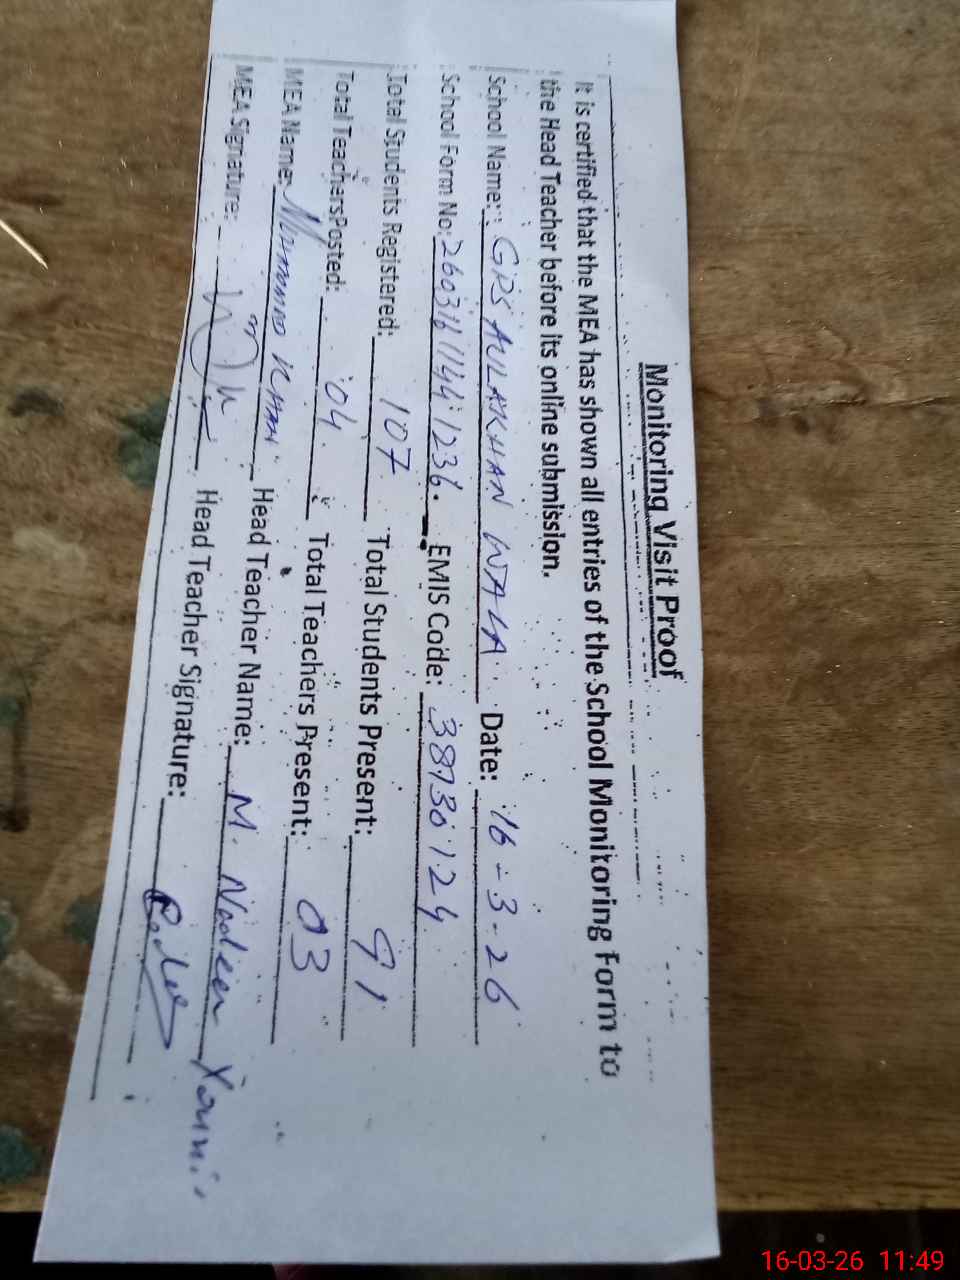 Monitoring Visit Proof
It is certified that the MEA has shown all entries of the School Monitoring Form to
the Head Teacher before its online submission.
School Name: GPS AULAKHAN WALA Date: 16-3-26
School Form No: 26031611441236. EMIS Code: 38730124
Total Students Registered: 107 Total Students Present: 91
Total Teachers Posted: 04 Total Teachers Present: 03
MEA Name: Khan Head Teacher Name: M. Nadeem
MEA Signature: Head Teacher Signature:
16-03-26 11:49